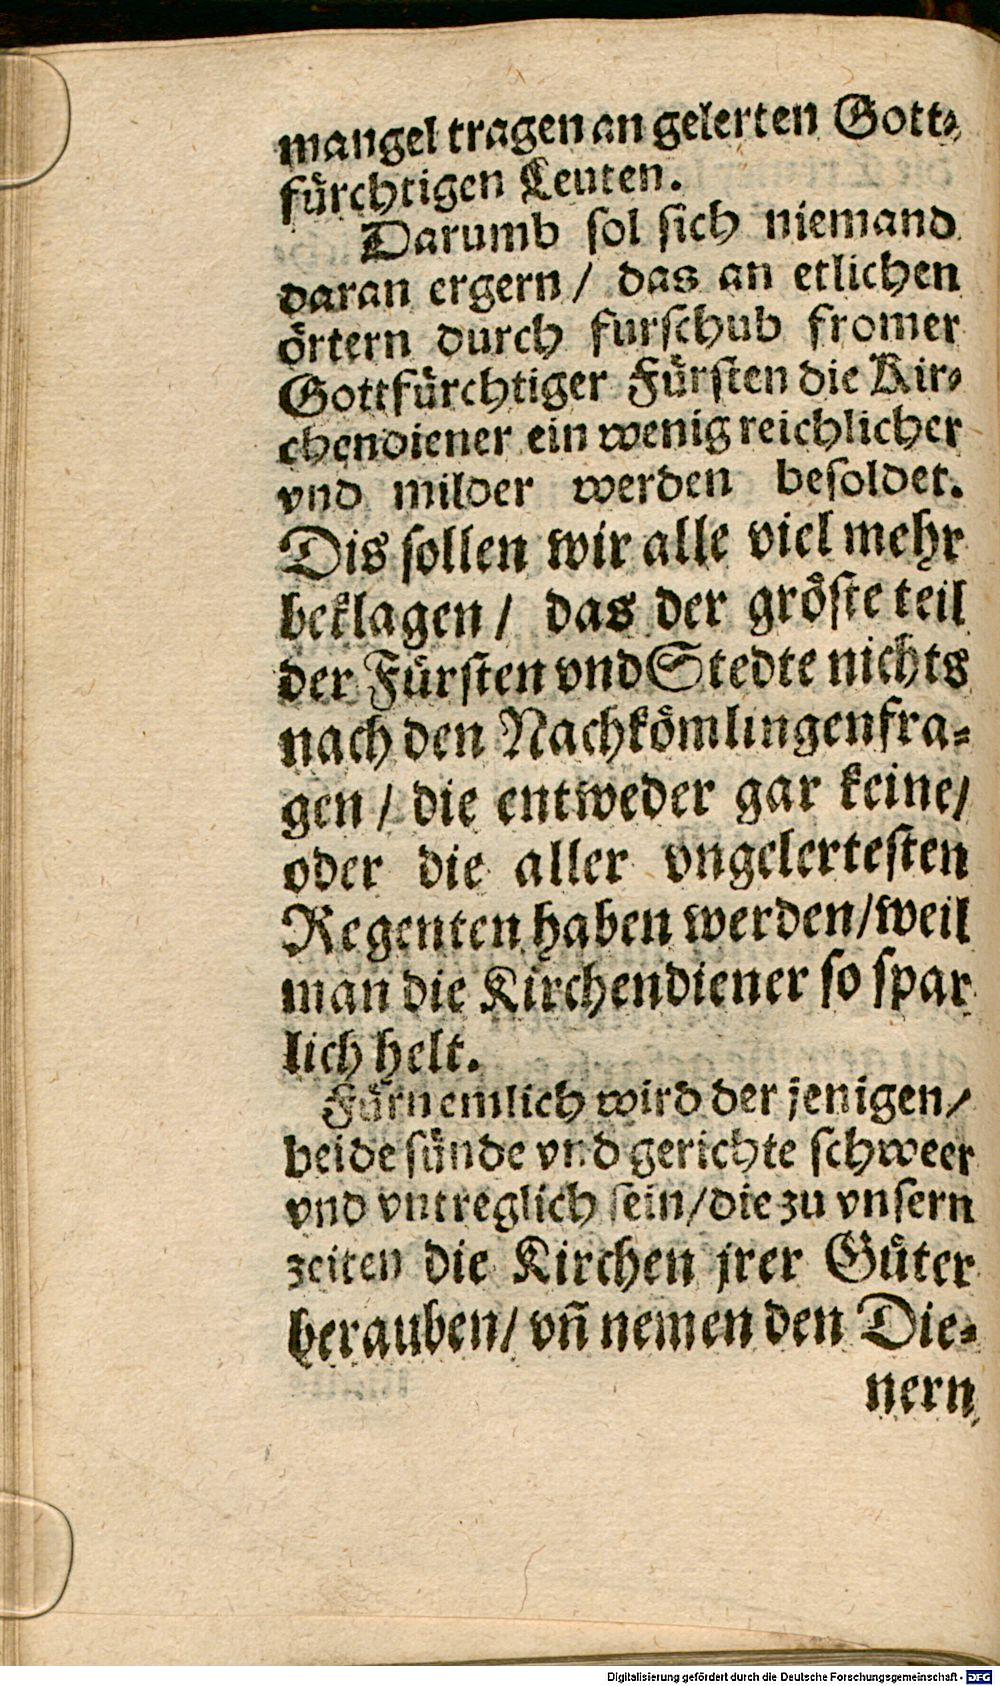 mangel tragen an gelerten Gott-
fürchtigen Leuten.
Darumb sol sich niemand
daran ergern / das an etlichen
örtern durch furschub fromer
Gottfürchtiger Fürsten die Kir-
chendiener ein wenig reichlicher
vnd milder werden besoldet.
Dis sollen wir alle viel mehr
beklagen / das der gröste teil
der Fürsten vnd Stedte nichts
nach den Nachkömlingen fra-
gen / die entweder gar keine /
oder die aller vngelertesten
Regenten haben werden / weil
man die Kirchendiener so spar
lich helt.
Fürnemlich wird der jenigen /
beide sünde vnd gerichte schweer
vnd vntreglich sein / die zu vnsern
zeiten die Kirchen jrer Güter
berauben / vñ nemen den Die-
nern
Digitalisierung gefördert durch die Deutsche Forschungsgemeinschaft - DFG